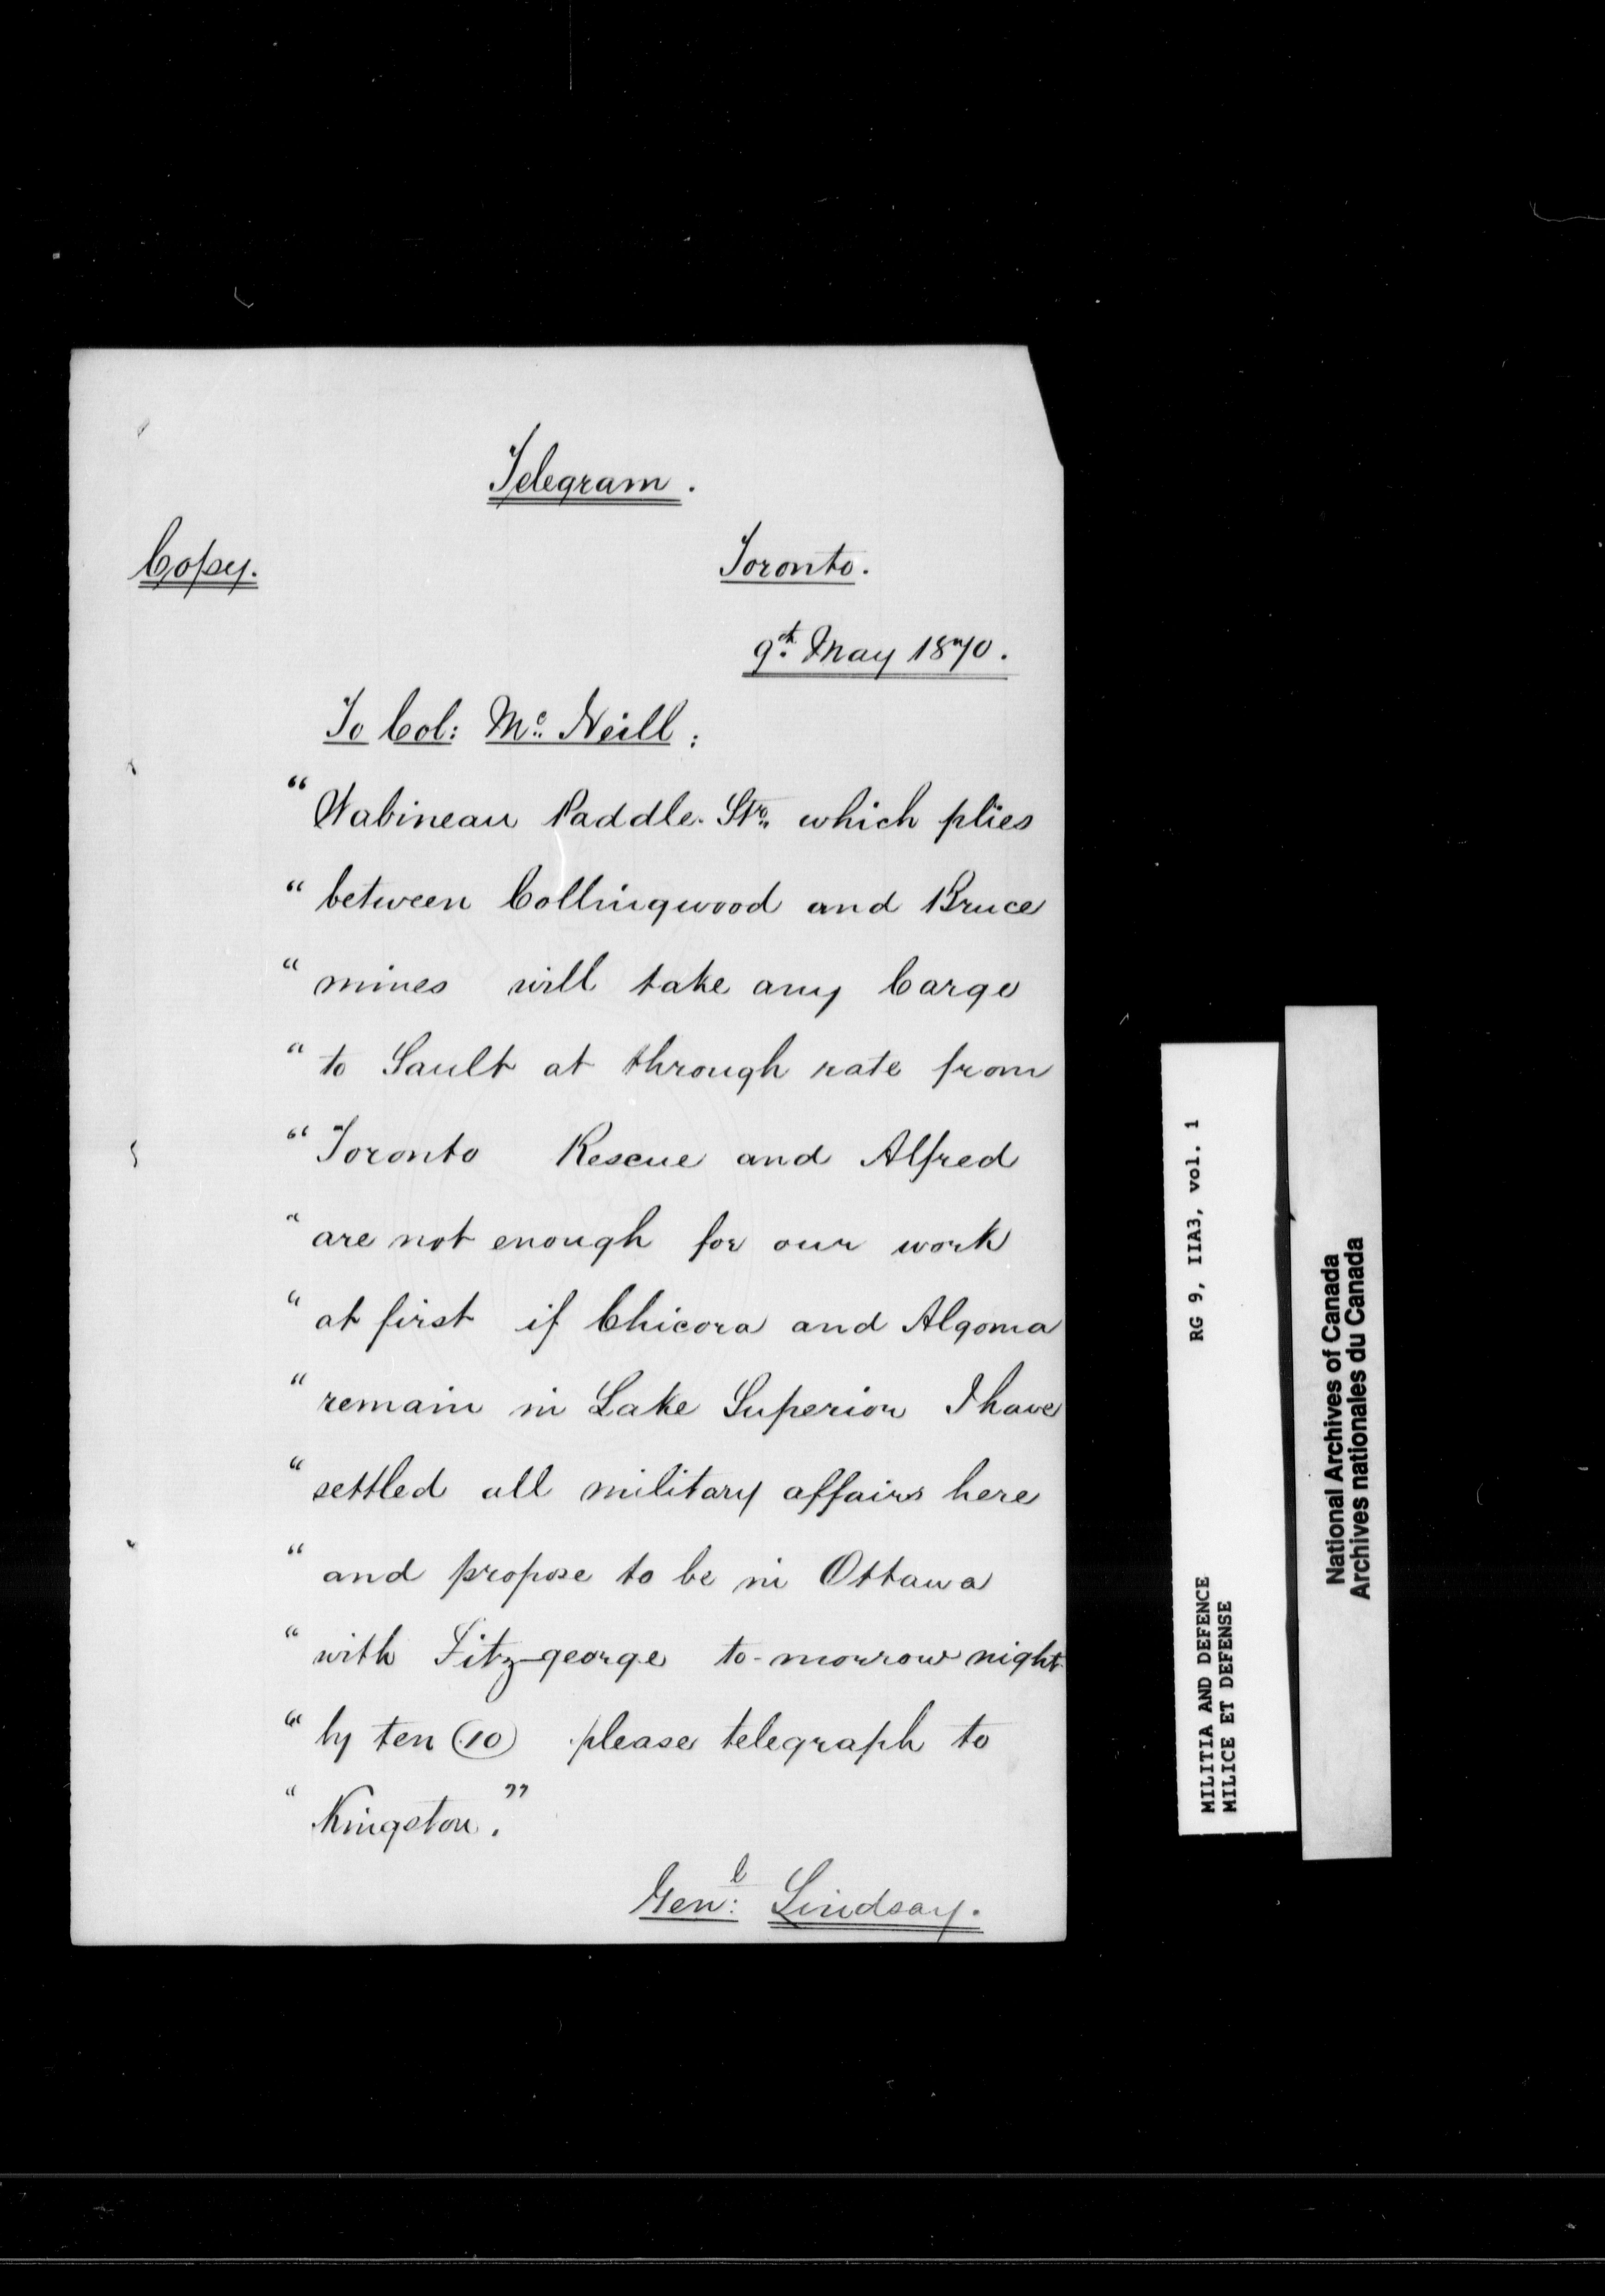 Telegram.
Copy.
Toronto.
9th May 1870.
To Col: Mc Neill:
"Wabineau Paddle Str. which plies
"between Collingwood and Bruce
"mines will take any Cargo
"to Sault at through rate from
"Toronto Rescue and Alfred
"are not enough for our work
"at first if Chicora and Algoma
"remain in Lake Superior I have
"settled all military affairs here
"and propose to be in Ottawa
"with Fitz-george to-morrow night
"by ten (10) please telegraph to
"Kingston."
Genl: Lindsay.
RG 9, IIA3, vol. 1
MILITIA AND DEFENCE
MILICE ET DEFENSE
National Archives of Canada
Archives nationales du Canada